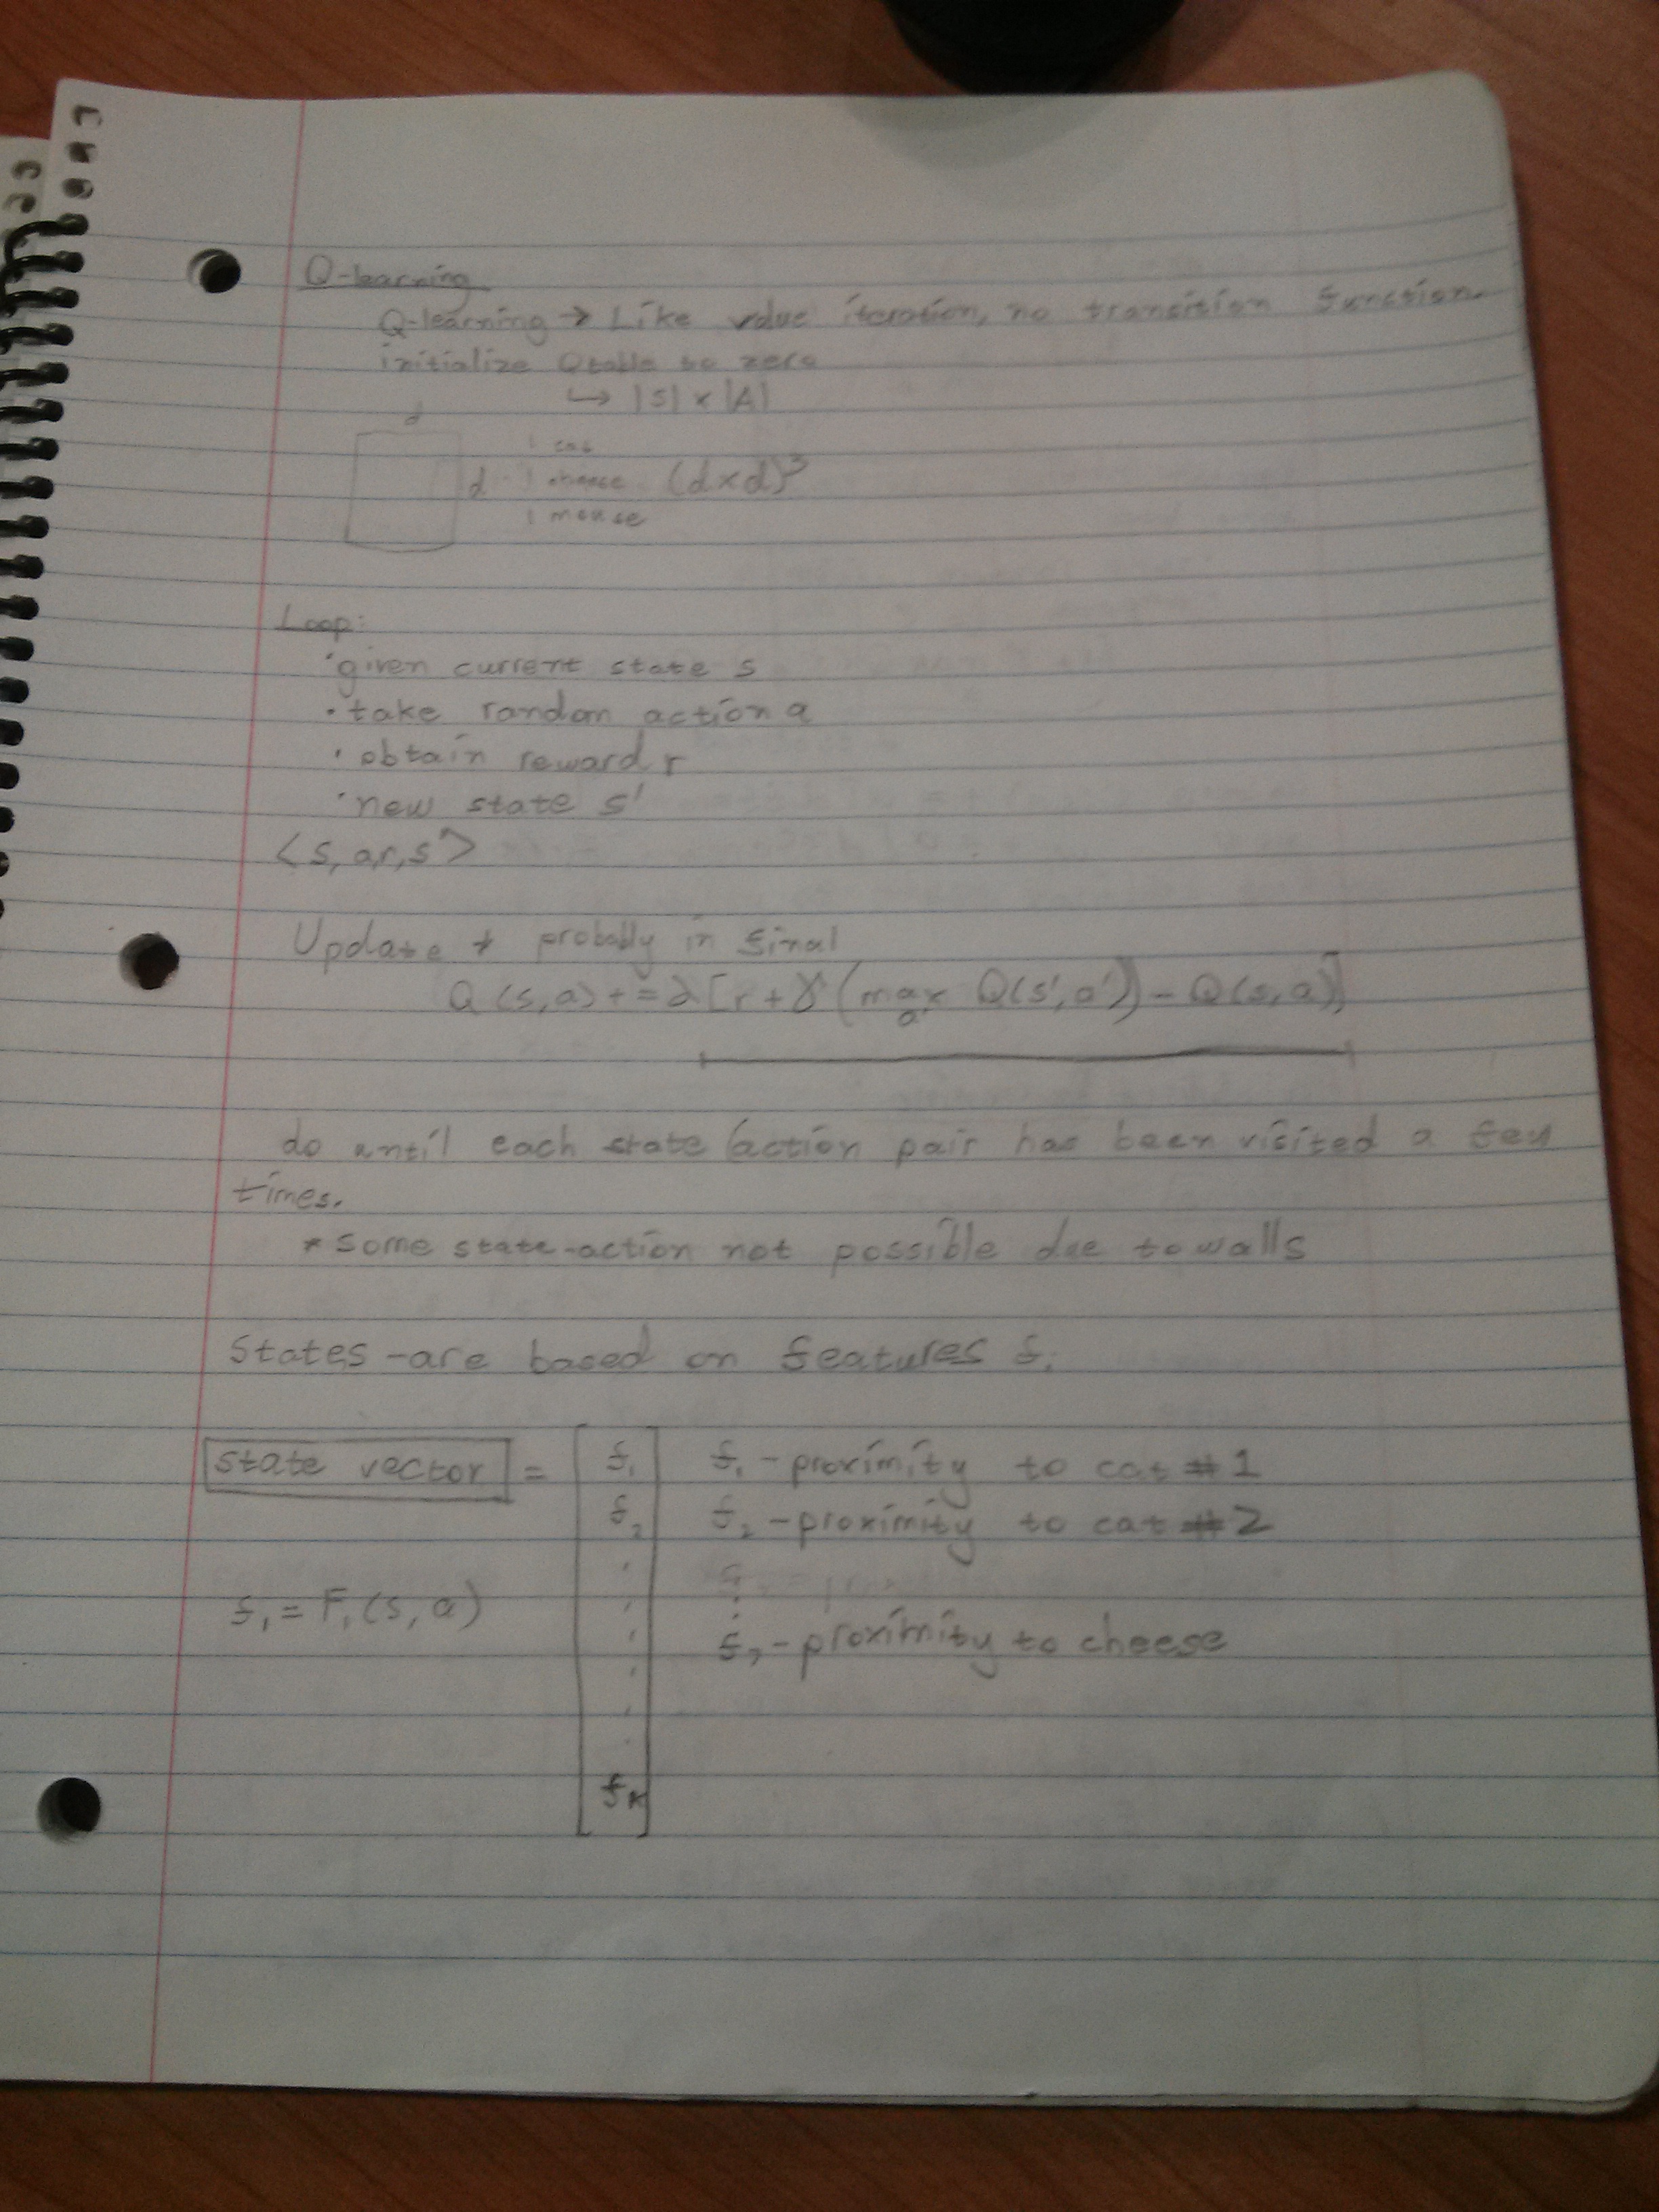 Q-learning
Q-learning → Like value iteration, no transition function.
initialize Qtable to zero
↳ |S| x |A|
d
1 cat
d 1 cheese (dxd)³
1 mouse
Loop:
· given current state s
· take random action a
· obtain reward r
· new state s'
<s, a,r,s'>
Update * probably in final
Q(s,a) += α [r + γ (max Q(s',a')) - Q(s,a)]
a'
do until each state/action pair has been visited a few
times.
* some state-action not possible due to walls
States - are based on features f.
state vector = [ f₁ f₁ - proximity to cat #1
f₂ f₂ - proximity to cat #2
f₁ = F₁(s, a)
f₇ - proximity to cheese
fₖ ]